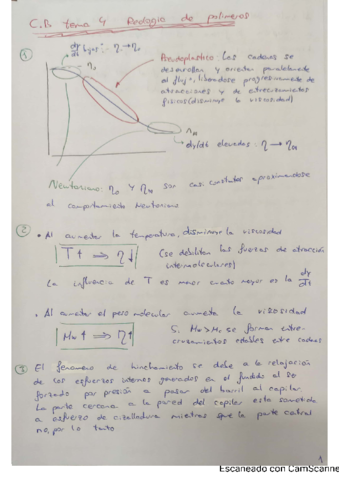 C.P. tema 4 Reología de polímeros
①
dγ/dt bajas: η → η₀
η₀
Pseudoplástico: Las cadenas se
desenrollan y orientan paralelamente
al flujo, liberándose progresivamente de
atracciones y de entrecruzamientos
físicos (disminuye la viscosidad)
η∞
dγ/dt elevadas: η → η∞
Newtoniano: η₀ y η∞ son casi constantes aproximandose
al comportamiento Newtoniano
②
• Al aumentar la temperatura, disminuye la viscosidad
T↑ ⇒ η↓
(se debilitan las fuerzas de atracción
intermoleculares)
La influencia de T es menor cuanto mayor es la dγ/dt
• Al aumentar el peso molecular aumenta la viscosidad
Mw↑ ⇒ η↑
Si Mw > Mc se forman entre-
cruzamientos estables entre cadenas
③ El fenómeno de hinchamiento se debe a la relajación
de los esfuerzos internos generados en el fundido al ser
forzado por presión a pasar del barril al capilar.
La parte cercana a la pared del capilar esta sometida
a esfuerzo de cizalladura mientras que la parte central
no, por lo tanto
1
Escaneado con CamScanne